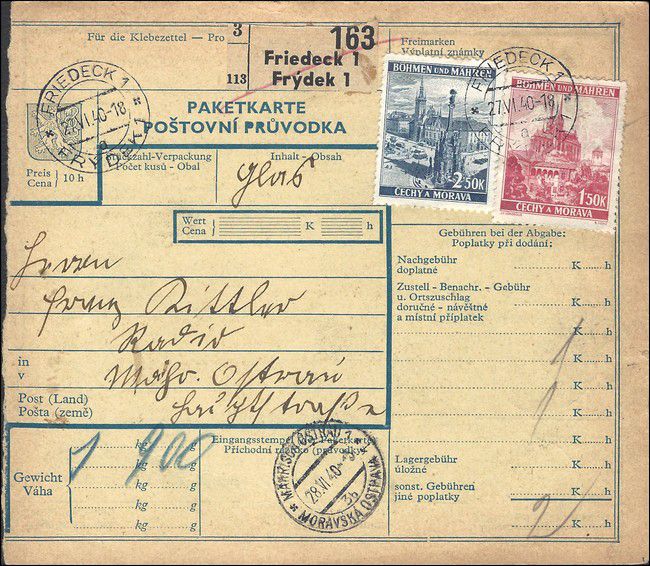 Für die Klebezettel — Pro
3
113
163
Friedeck 1
Frýdek 1
Freimarken
Výplatní známky
BÖHMEN UND MÄHREN
2·50K
ČECHY A MORAVA
BÖHMEN UND MÄHREN
1·50K
ČECHY A MORAVA
FRIEDECK 1
27.VI.40-18
a
FRÝDEK 1
FRIEDECK 1
27.VI.40-18
a
PAKETKARTE
POŠTOVNÍ PRŮVODKA
Preis
Cena
10 h
Stückzahl-Verpackung
Počet kusů - Obal
Inhalt - Obsah
Glas
Wert
Cena
K h
Gebühren bei der Abgabe:
Poplatky při dodání:
Nachgebühr
doplatné
K h
Zustell - Benachr. - Gebühr
u. Ortszuschlag
doručné - návěštné
a místní příplatek
K h
K h
K h
K h
K h
K h
Lagergebühr
úložné
K h
sonst. Gebühren
jiné poplatky
K h
2
K h
Herrn
Franz Kittler
Radio
in
v
Mähr. Ostrau
Post (Land)
Pošta (země)
Hauptstraße
Gewicht
Váha
1 900
kg g
kg g
kg g
kg g
kg g
Eingangsstempel Paketkarte
Příchodní razítko (průvodky)
MÄHRISCH OSTRAU 1
28.VI.40
3b
MORAVSKÁ OSTRAVA